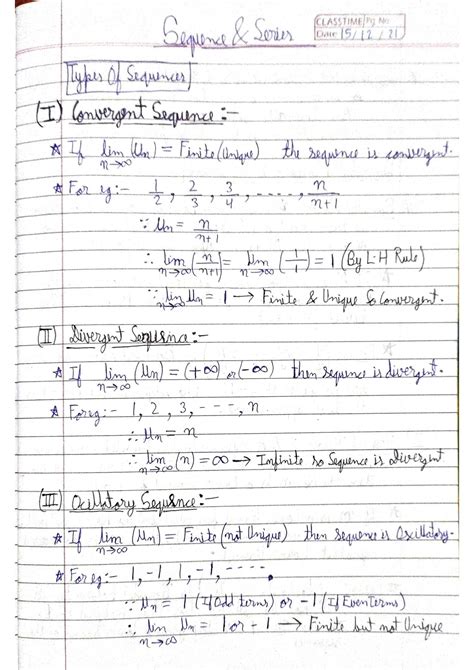 Sequence & Series
CLASSTIME Pg. No.
Date 15/12/21
Types Of Sequences
(I) Convergent Sequence :-
☆ If lim n→∞ (Un) = Finite (Unique) the sequence is convergent.
☆ For eg:- 1/2, 2/3, 3/4, ----, n/n+1
∵ Un = n/n+1
∴ lim n→∞ (n/n+1) = lim n→∞ (1/1) = 1 (By L-H Rule)
∵ lim n→∞ Un = 1 → Finite & Unique So Convergent.
(II) Divergent Sequence :-
☆ If lim n→∞ (Un) = (+∞) or (-∞) then sequence is divergent.
☆ For eg:- 1, 2, 3, ----, n
∴ Un = n
∴ lim n→∞ (n) = ∞ → Infinite so Sequence is Divergent
(III) Ocillatory Sequence :-
☆ If lim n→∞ (Un) = Finite (not Unique) then sequence is Oscillatory.
☆ For eg:- 1, -1, 1, -1, -----.
∵ Un = 1 (If Odd terms) or -1 (If Even Terms)
∴ lim n→∞ Un = 1 or -1 → Finite but not Unique